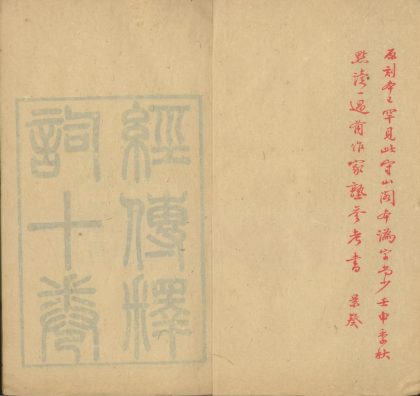 原刻本已罕見此守山閣本譌字尚少壬申季秋
點讀一過留作家塾參考書　景葵
經傳釋
詞十卷